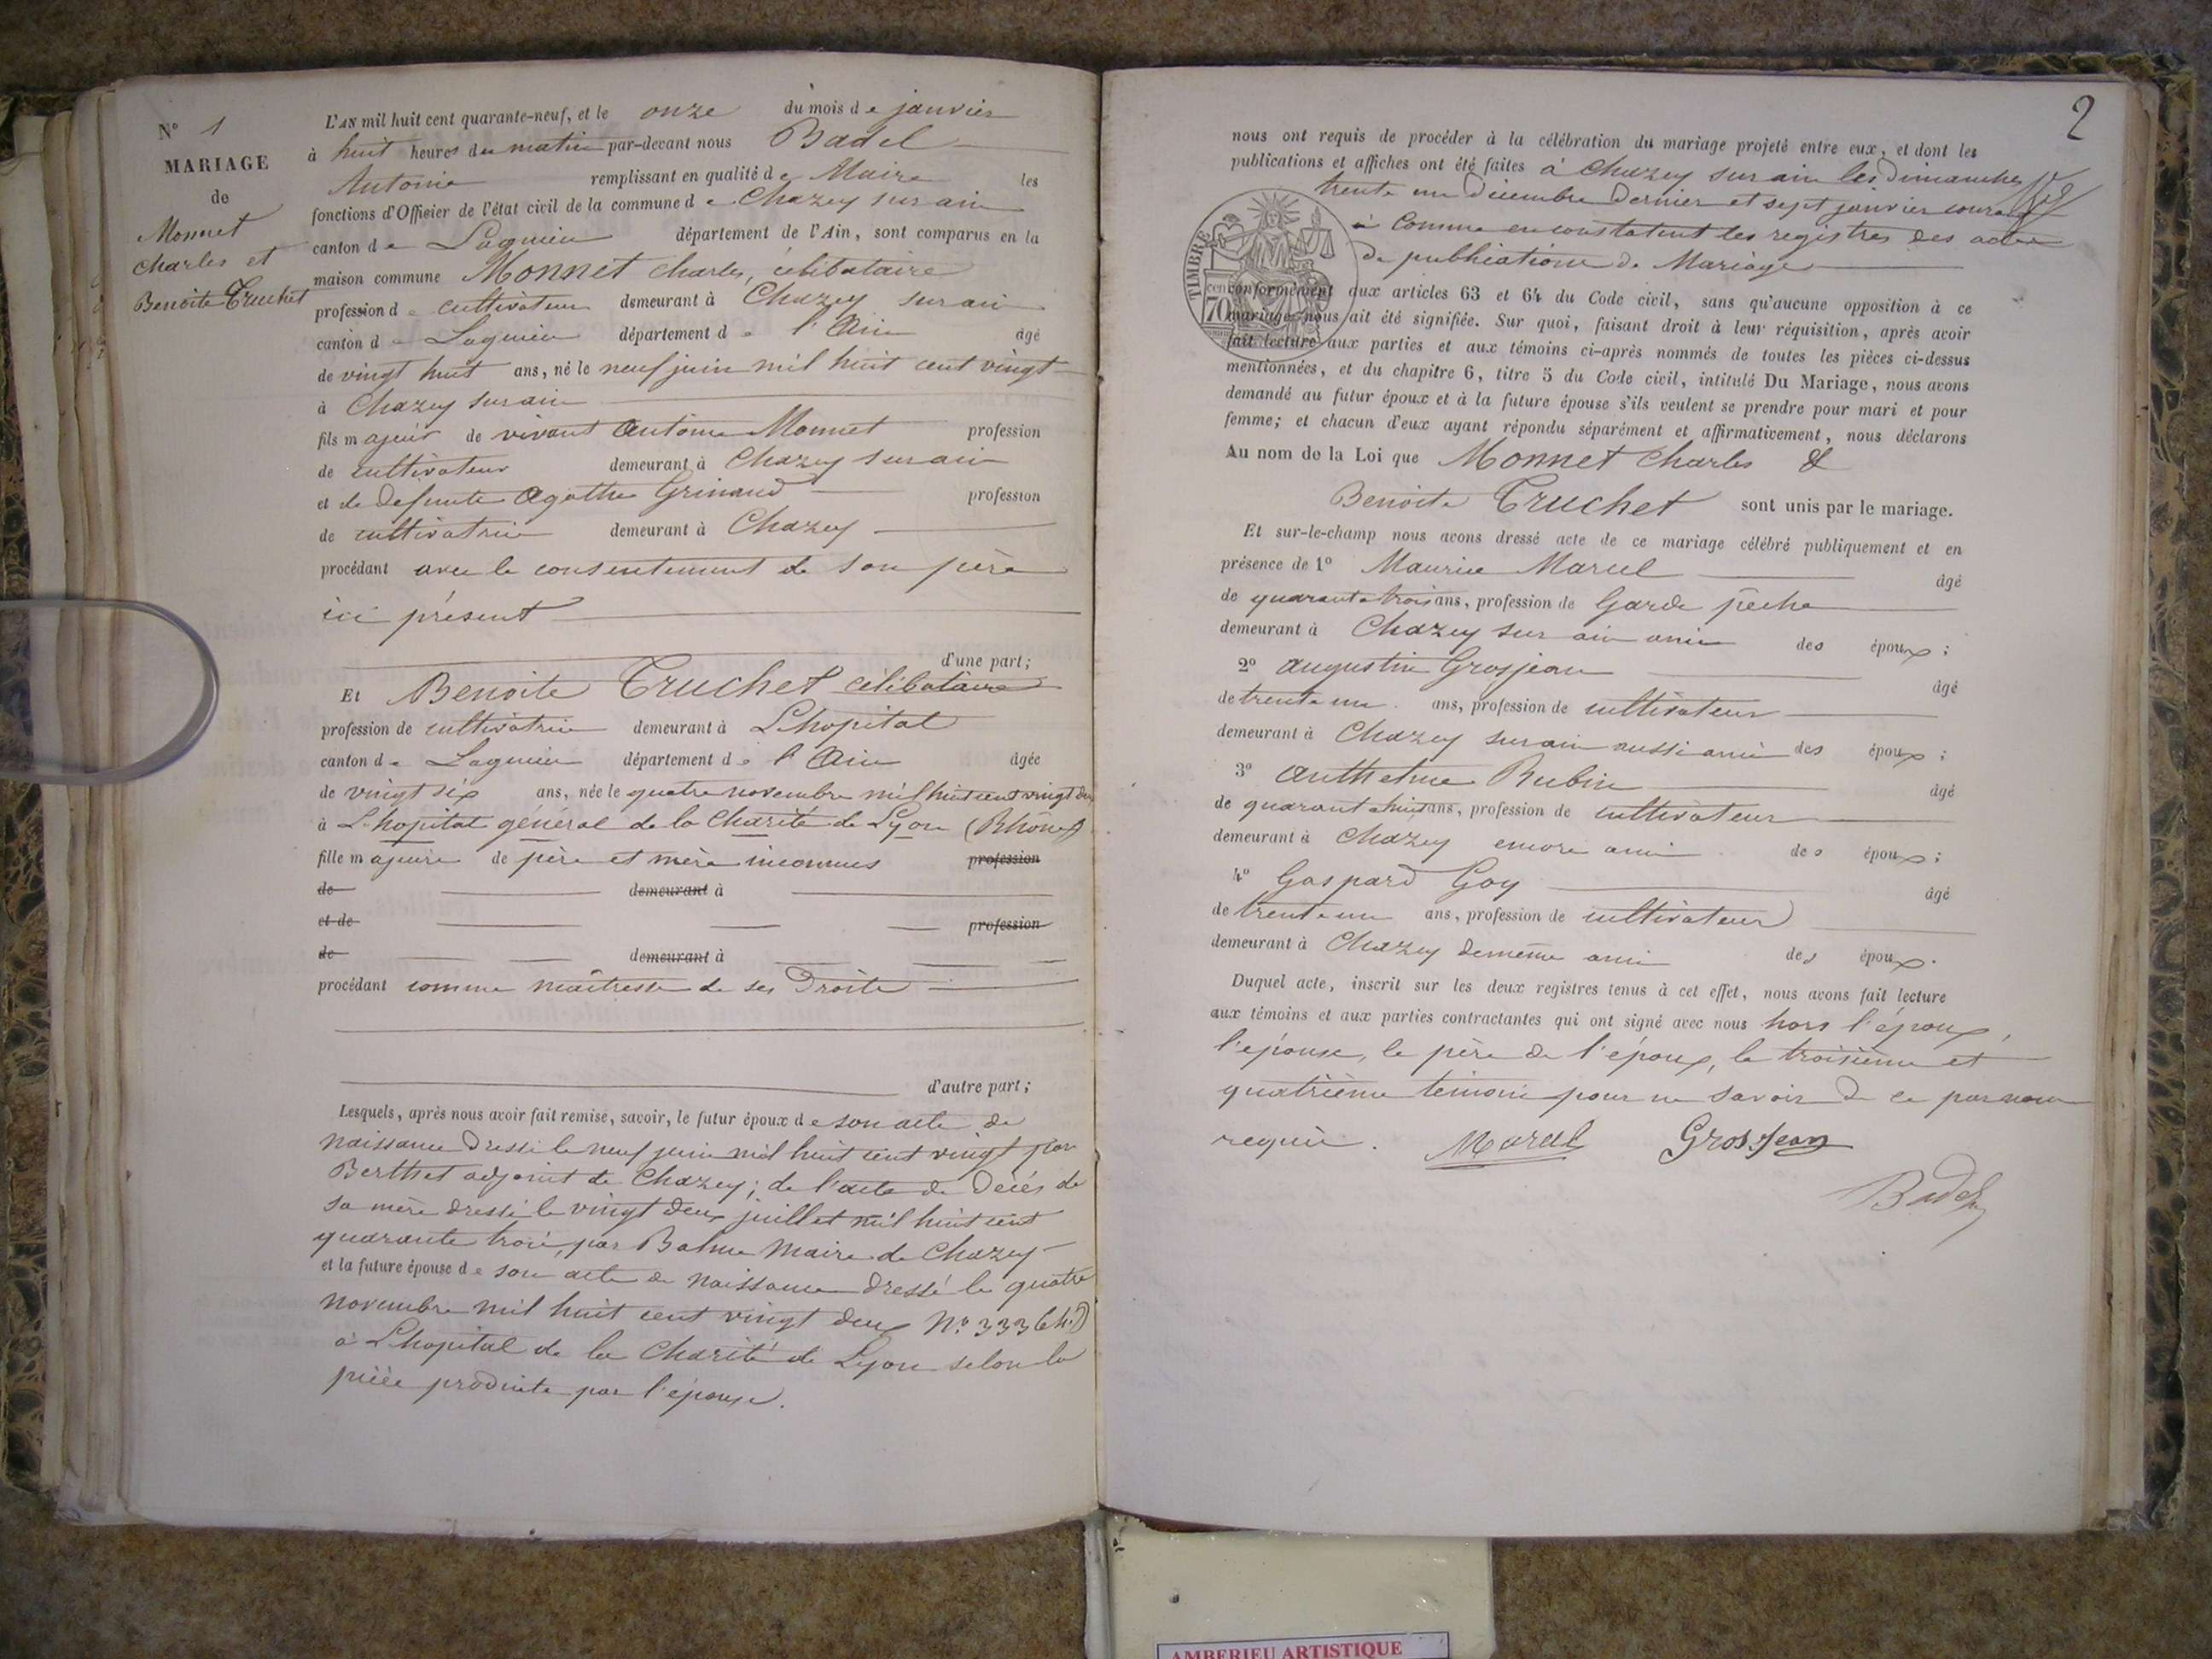 N° 1
MARIAGE
de
Monnet
Charles et
Benoite Truchet
L'AN mil huit cent quarante-neuf, et le onze du mois de janvier
à huit heures du matin par-devant nous Badel
Antoine remplissant en qualité de Maire les
fonctions d'Officier de l'état civil de la commune de Chazey sur ain
canton de Lagnieu département de l'Ain, sont comparus en la
maison commune Monnet Charles, célibataire
profession de cultivateur demeurant à Chazey sur ain
canton de Lagnieu département de l'Ain âgé
de vingt huit ans, né le neuf juin mil huit cent vingt
à Chazey sur ain
fils majeur de vivant Antoine Monnet profession
de cultivateur demeurant à Chazey sur ain
et de defunte Agathe Grinand profession
de cultivatrice demeurant à Chazey
procédant avec le consentement de son père
ici présent
d'une part;
Et Benoite Truchet célibataire
profession de cultivatrice demeurant à Lhopital
canton de Lagnieu département de l'Ain âgée
de vingt six ans, née le quatre novembre mil huit cent vingt deux
à L'hopital général de la Charité de Lyon (Rhône)
fille majeure de père et mère inconnus profession
de demeurant à
et de profession
de demeurant à
procédant comme maîtresse de ses Droits
d'autre part;
Lesquels, après nous avoir fait remise, savoir, le futur époux de son acte de
naissance dressé le neuf juin mil huit cent vingt par
Berthet adjoint de Chazey; de l'acte de décès de
sa mère dressé le vingt deux juillet mil huit cent
quarante trois, par Balme Maire de Chazey
et la future épouse de son acte de naissance dressé le quatre
novembre mil huit cent vingt deux N° 333
à L'hopital de la Charité de Lyon selon la
pièce produite par l'épouse.
2
nous ont requis de procéder à la célébration du mariage projeté entre eux, et dont les
publications et affiches ont été faites à Chazey sur ain les Dimanches
trente un Décembre Dernier et sept janvier courant
à Comme en constatent les registres des actes
de publications de Mariage
TIMBRE
70 cen
conformément aux articles 63 et 64 du Code civil, sans qu'aucune opposition à ce
mariage nous ait été signifiée. Sur quoi, faisant droit à leur réquisition, après avoir
fait lecture aux parties et aux témoins ci-après nommés de toutes les pièces ci-dessus
mentionnées, et du chapitre 6, titre 5 du Code civil, intitulé Du Mariage, nous avons
demandé au futur époux et à la future épouse s'ils veulent se prendre pour mari et pour
femme; et chacun d'eux ayant répondu séparément et affirmativement, nous déclarons
Au nom de la Loi que Monnet Charles &
Benoite Truchet sont unis par le mariage.
Et sur-le-champ nous avons dressé acte de ce mariage célébré publiquement et en
présence de 1° Maurice Marcel âgé
de quarante trois ans, profession de Garde pêche
demeurant à Chazey sur ain ami des époux;
2° Augustin Grosjean âgé
de trente un ans, profession de cultivateur
demeurant à Chazey sur ain aussi ami des époux;
3° Anthelme Rubin âgé
de quarante huit ans, profession de cultivateur
demeurant à Chazey encore ami des époux;
4° Gaspard Goy âgé
de trente un ans, profession de cultivateur
demeurant à Chazey de même ami des époux.
Duquel acte, inscrit sur les deux registres tenus à cet effet, nous avons fait lecture
aux témoins et aux parties contractantes qui ont signé avec nous hors l'époux,
l'épouse, le père de l'époux, le troisième et
quatrième témoin pour ne savoir de ce par nous
requis. Marcel Grosjean
Badel
AMBERIEU ARTISTIQUE